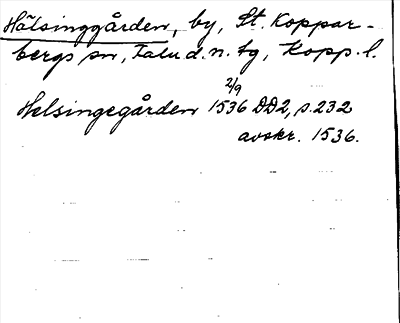 Hälsinggården, by, St. Koppar-
bergs sn, Falu d. n. tg, Kopp. l.
2/9
Helsingegården 1536 DD2, s. 232
avskr. 1536.